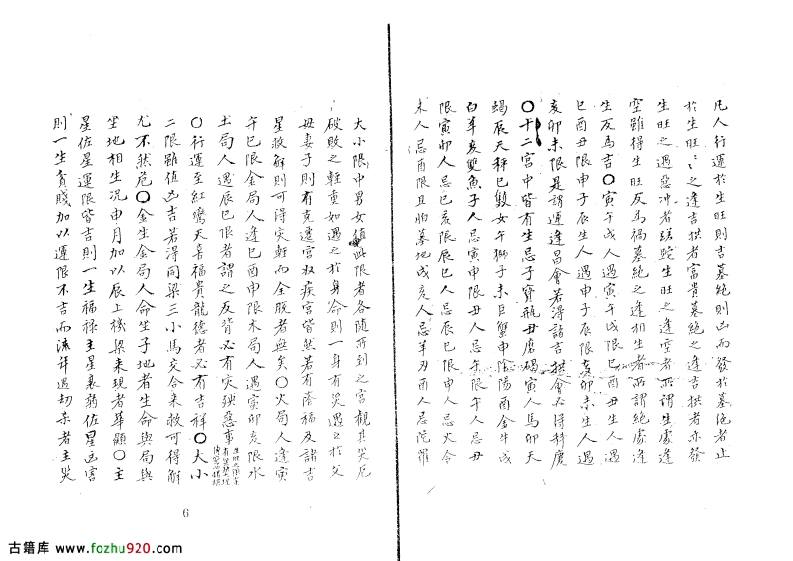 凡人行運於生旺則吉墓絕則凶而發於墓絕者止
於生旺生旺之逢吉拱者富貴墓絕之逢吉拱者亦發
生旺之遇惡冲者蹉跎生旺之逢空者所謂生處逢
空雖得生旺反為禍墓絕之逢相生者所謂絕處逢
生反為吉〇寅午戌人遇寅午戌限巳酉丑生人遇
巳酉丑限申子辰生人遇申子辰限亥卯未生人遇
亥卯未限是謂運逢昌會若得諸吉拱會必得科慶
〇十二宮中皆有生忌子寶瓶丑磨磶寅人馬卯天
蝎辰天秤巳雙女午獅子未巨蟹申陰陽酉金牛戌
白羊亥雙魚子人忌寅申限丑人忌午限午人忌丑
限寅卯人忌巳亥限辰巳人忌辰巳限申人忌火令
未人忌酉限且朐墓地戌亥人忌羊丑酉人忌陀羅
大小限中男女值此限者各隨所到之宮觀其災厄
破敗之輕重如遇之於身命則一身有災遇之於父
母妻子則有克遷宮奴疾宮皆然若有陰福及諸吉
星救解則可得災輕而全脫者無矣〇火局人逢寅
午巳限金局人逢巳酉申限木局人遇寅卯亥限水
土局人遇辰巳限者謂之反背必有災殃惡事
〇行運至紅鸞天喜福貴龍德者必有吉祥〇大小
二限雖值凶吉若得同梁三小馬交合來救可得解
尤不然危〇金生金局人命坐子地者生命與局與
坐地相生況申月加以辰上機梁來現者華顯〇主
星佐星運限皆吉則一生福祿主星衰弱佐星凶害
則一生貧賤加以運限不吉而流年遇劫杀者主災
6
古籍库 www.fozhu920.com